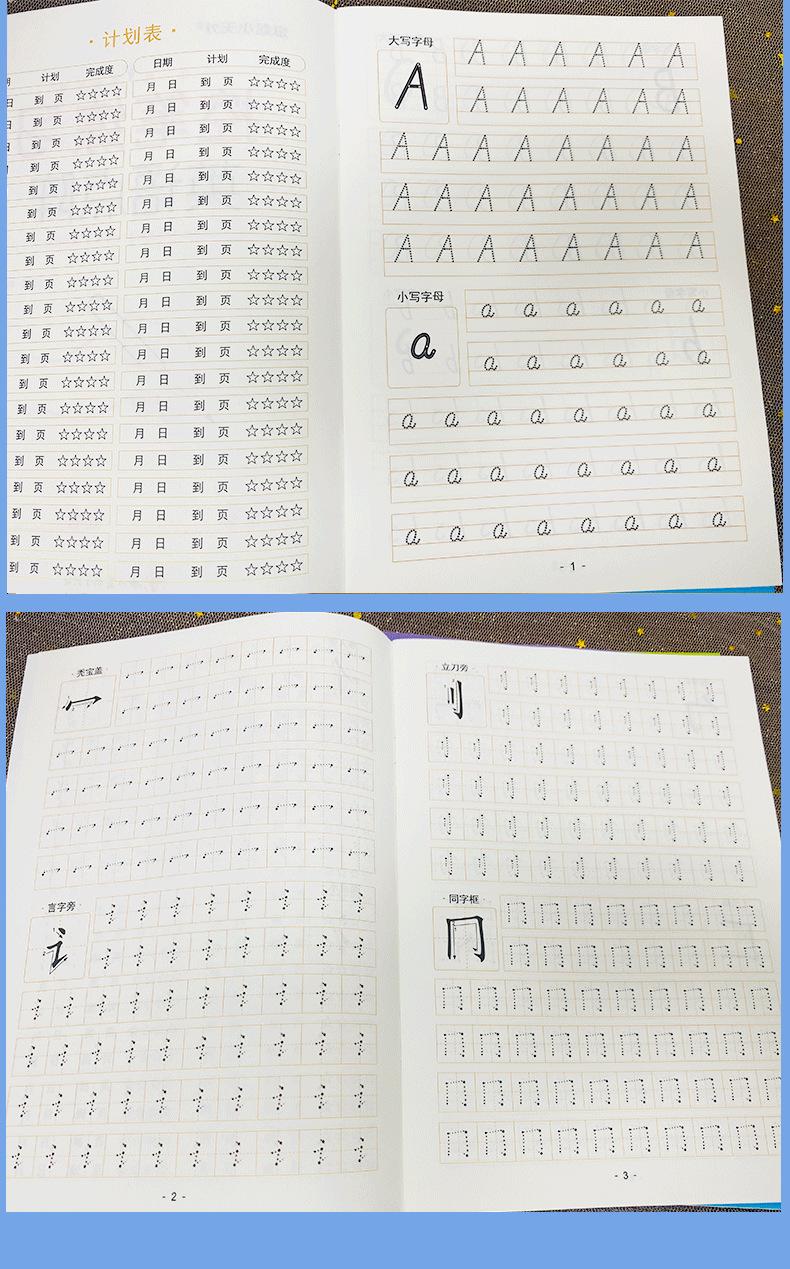 · 计划表 ·
计划 完成度 日期 计划 完成度
日 到 页 ☆☆☆☆ 月 日 到 页 ☆☆☆☆
日 到 页 ☆☆☆☆ 月 日 到 页 ☆☆☆☆
日 到 页 ☆☆☆☆ 月 日 到 页 ☆☆☆☆
到 页 ☆☆☆☆ 月 日 到 页 ☆☆☆☆
到 页 ☆☆☆☆ 月 日 到 页 ☆☆☆☆
到 页 ☆☆☆☆ 月 日 到 页 ☆☆☆☆
到 页 ☆☆☆☆ 月 日 到 页 ☆☆☆☆
到 页 ☆☆☆☆ 月 日 到 页 ☆☆☆☆
到 页 ☆☆☆☆ 月 日 到 页 ☆☆☆☆
到 页 ☆☆☆☆ 月 日 到 页 ☆☆☆☆
到 页 ☆☆☆☆ 月 日 到 页 ☆☆☆☆
到 页 ☆☆☆☆ 月 日 到 页 ☆☆☆☆
到 页 ☆☆☆☆ 月 日 到 页 ☆☆☆☆
到 页 ☆☆☆☆ 月 日 到 页 ☆☆☆☆
到 页 ☆☆☆☆ 月 日 到 页 ☆☆☆☆
到 页 ☆☆☆☆ 月 日 到 页 ☆☆☆☆
到 页 ☆☆☆☆ 月 日 到 页 ☆☆☆☆
到 页 ☆☆☆☆ 月 日 到 页 ☆☆☆☆
到 页 ☆☆☆☆ 月 日 到 页 ☆☆☆☆
到 页 ☆☆☆☆ 月 日 到 页 ☆☆☆☆
大写字母
A
A A A A A A
A A A A A A
A A A A A A A A
A A A A A A A A
A A A A A A A A
小写字母
a
a a a a a a
a a a a a a
a a a a a a a a
a a a a a a a a
a a a a a a a a
- 1 -
秃宝盖
冖
言字旁
讠
- 2 -
立刀旁
刂
同字框
冂
- 3 -